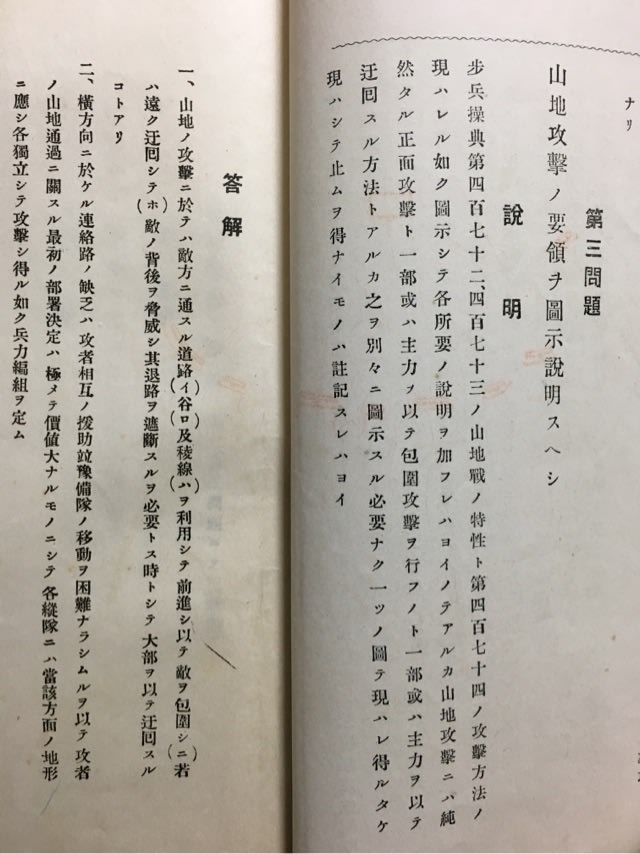 ナリ
第三問題
山地攻擊ノ要領ヲ圖示說明スヘシ
說明
步兵操典第四百七十二、四百七十三ノ山地戰ノ特性ト第四百七十四ノ攻擊方法ノ
現ハレル如ク圖示シテ各所要ノ說明ヲ加フレハヨイノテアルカ山地攻擊ニハ純
然タル正面攻擊ト一部或ハ主力ヲ以テ包圍攻擊ヲ行フノト一部或ハ主力ヲ以テ
迂回スル方法トアルカ之ヲ別々ニ圖示スル必要ナク一ツノ圖テ現ハレ得ルタケ
現ハシテ止ムヲ得ナイモノハ註記スレハヨイ
答解
一、山地ノ攻擊ニ於テハ敵方ニ通スル道路(イ)谷(ロ)及稜線(ハ)ヲ利用シテ前進シ以テ敵ヲ包圍シ(ニ)若
ハ遠ク迂回シテ(ホ)敵ノ背後ヲ脅威シ其退路ヲ遮斷スルヲ必要トス時トシテ大部ヲ以テ迂回スル
コトアリ
二、橫方向ニ於ケル連絡路ノ缺乏ハ攻者相互ノ援助竝豫備隊ノ移動ヲ困難ナラシムルヲ以テ攻者
ノ山地通過ニ關スル最初ノ部署決定ハ極メテ價値大ナルモノニシテ各縱隊ニハ當該方面ノ地形
ニ應シ各獨立シテ攻擊シ得ル如ク兵力編組ヲ定ム